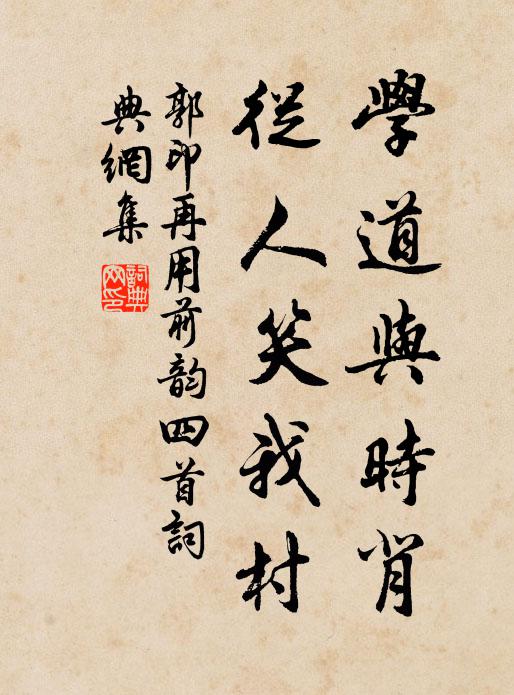 學道與時背
從人笑我村
郭印再用前韵四首詞
典網集
詞典
网印